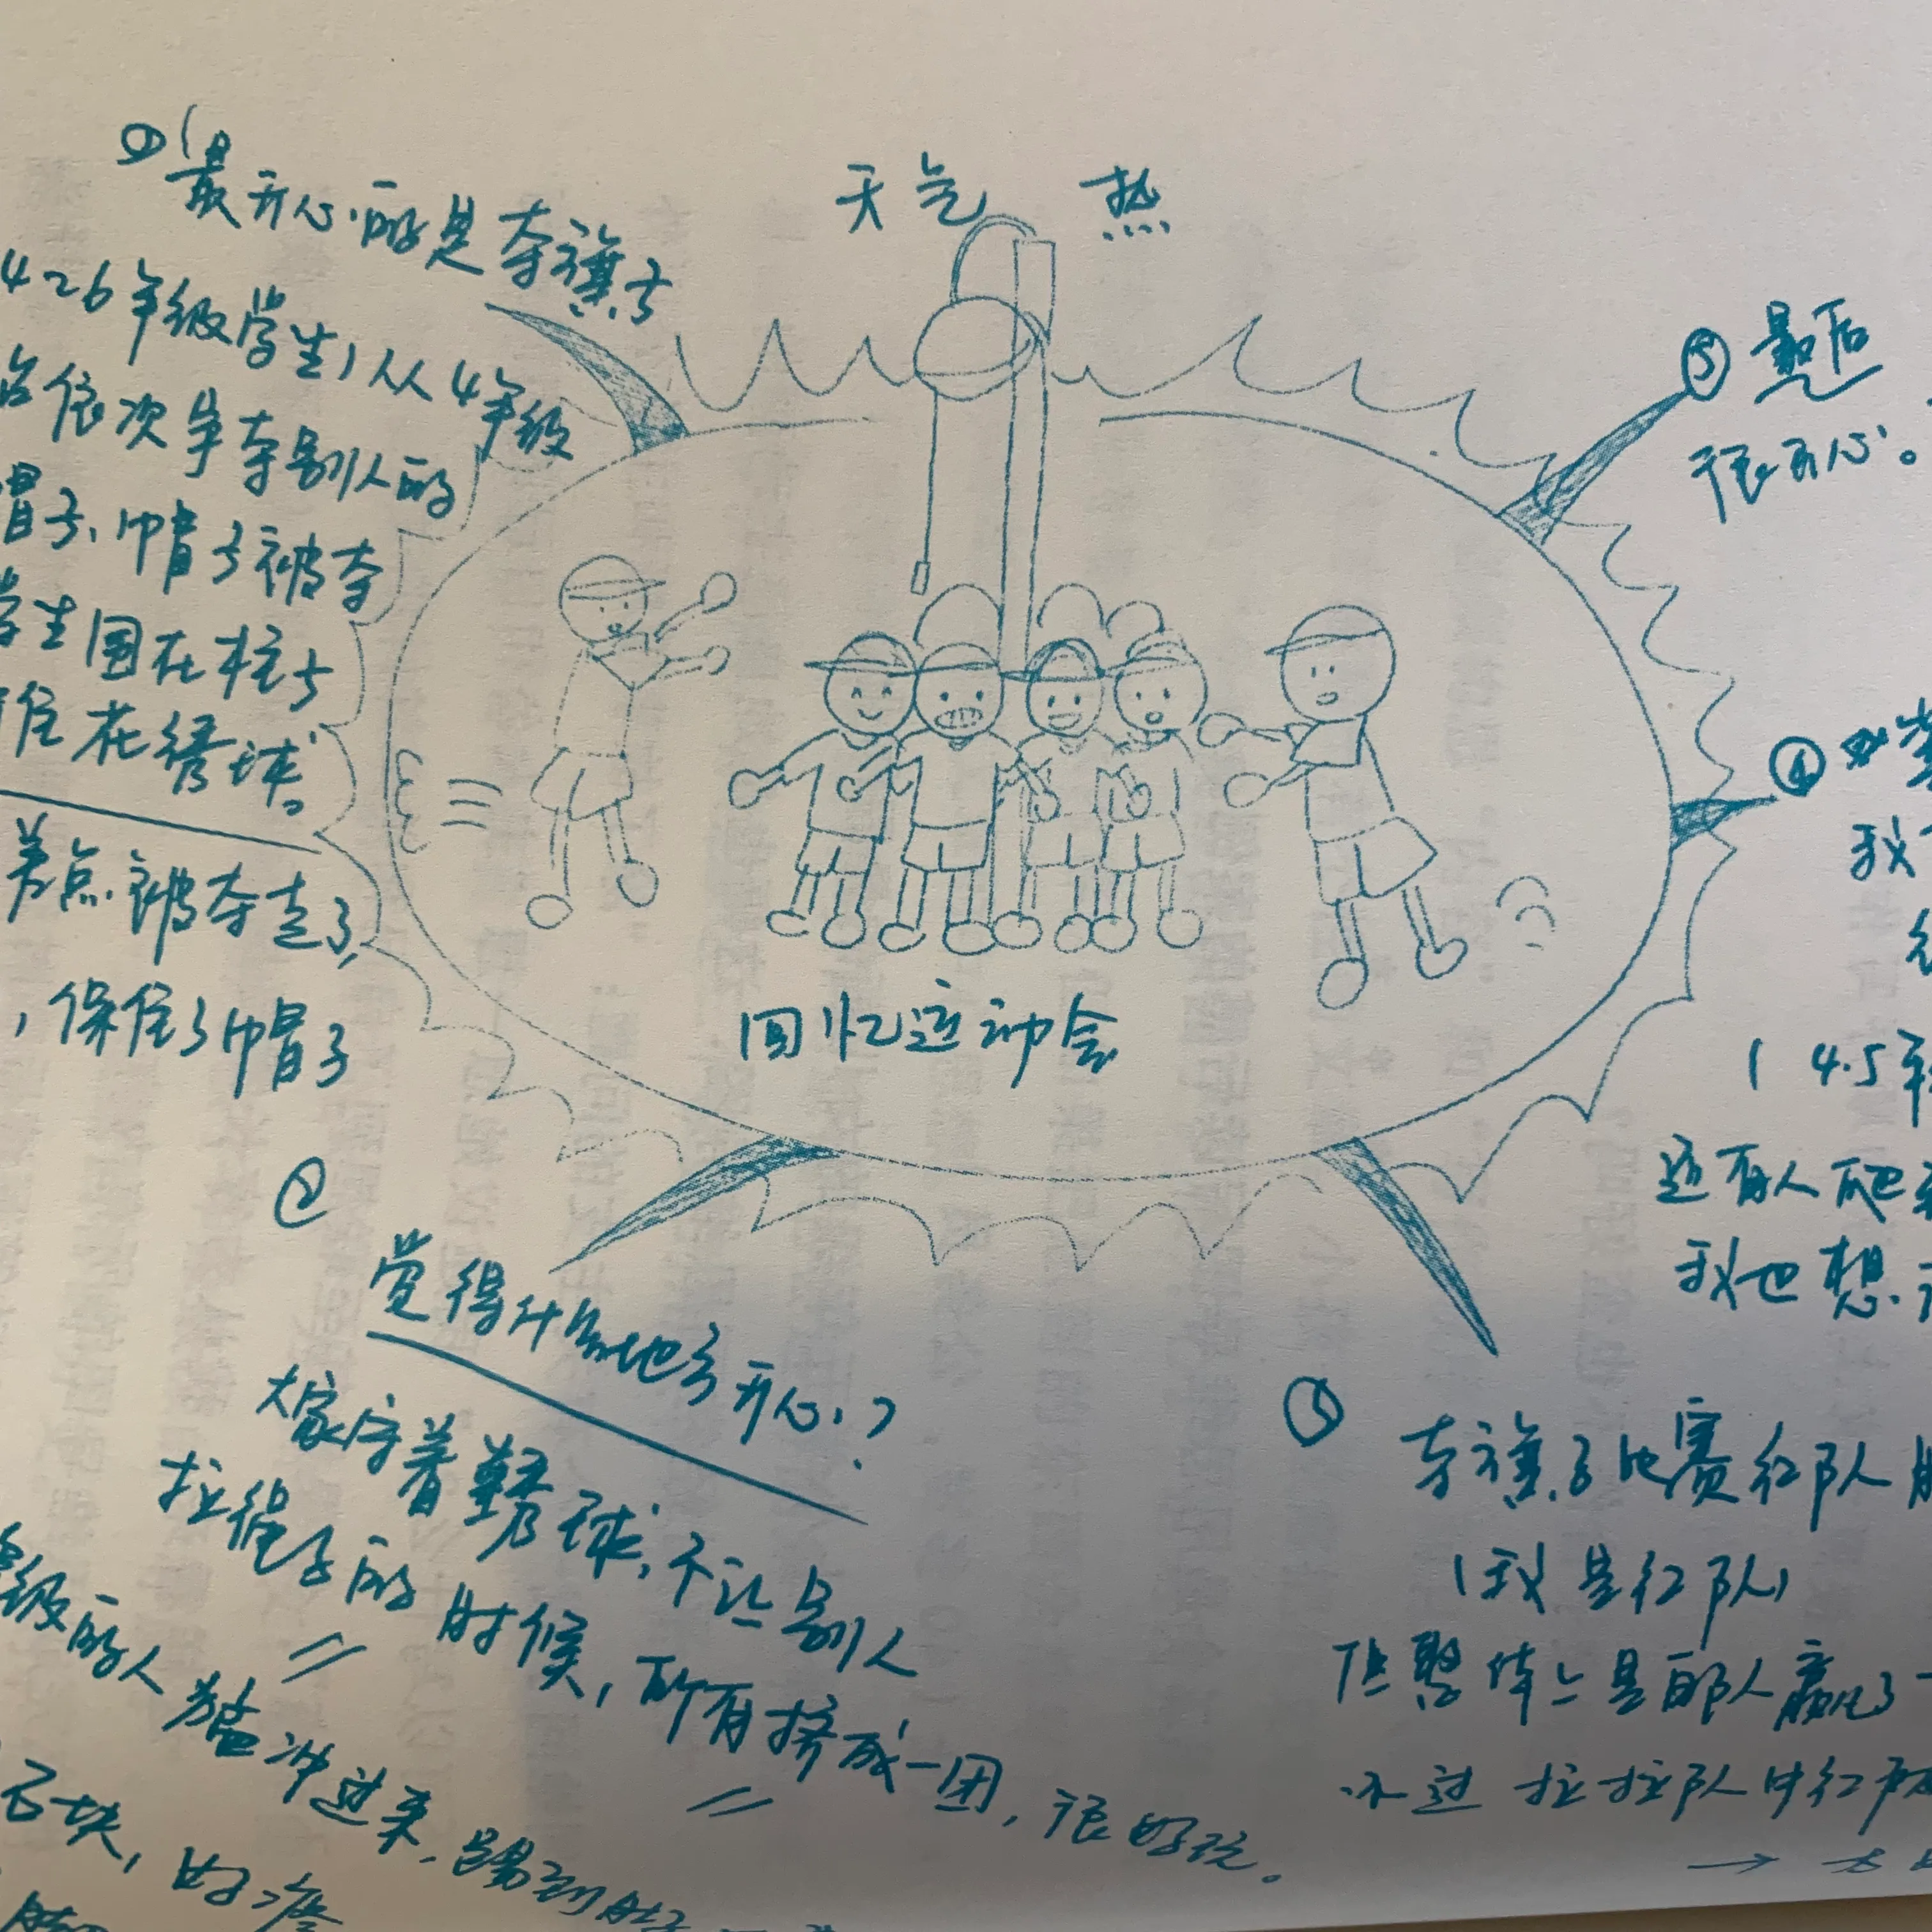 天气 热
① 最开心的是夺旗子
4~6年级学生,从4年级
依次争夺别人的
帽子、帽子被夺
学生围在柱子
住在绣球。
差点被夺走了,
,保住了帽子
回忆运动会
②
觉得什么地方开心?
大家守着绣球,不让别人
拉绳子的时候,所有挤成一团,很好玩。
级的人猛冲过来,踢到肚子
石块,好疼
③
夺旗子比赛红队
(我是红队)
但整体上是白队人赢了
不过拉拉队中红队
→
④
我
(4.5年
还有人爬
我也想
⑤ 最后
很开心。